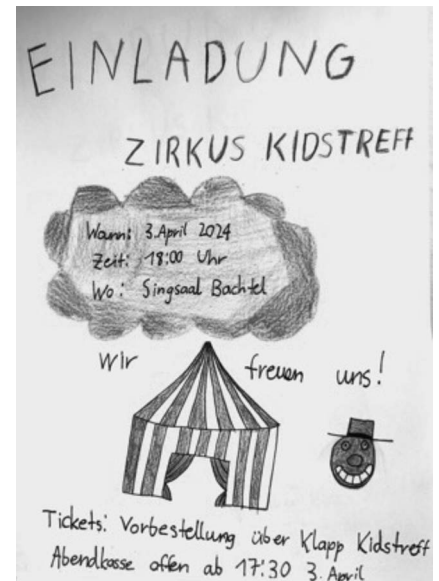 EINLADUNG
ZIRKUS KIDSTREFF
Wann: 3. April 2024
Zeit: 18:00 Uhr
Wo: Singsaal Bachtel
Wir freuen uns!
Tickets: Vorbestellung über Klapp Kidstreff
Abendkasse offen ab 17:30 3. April